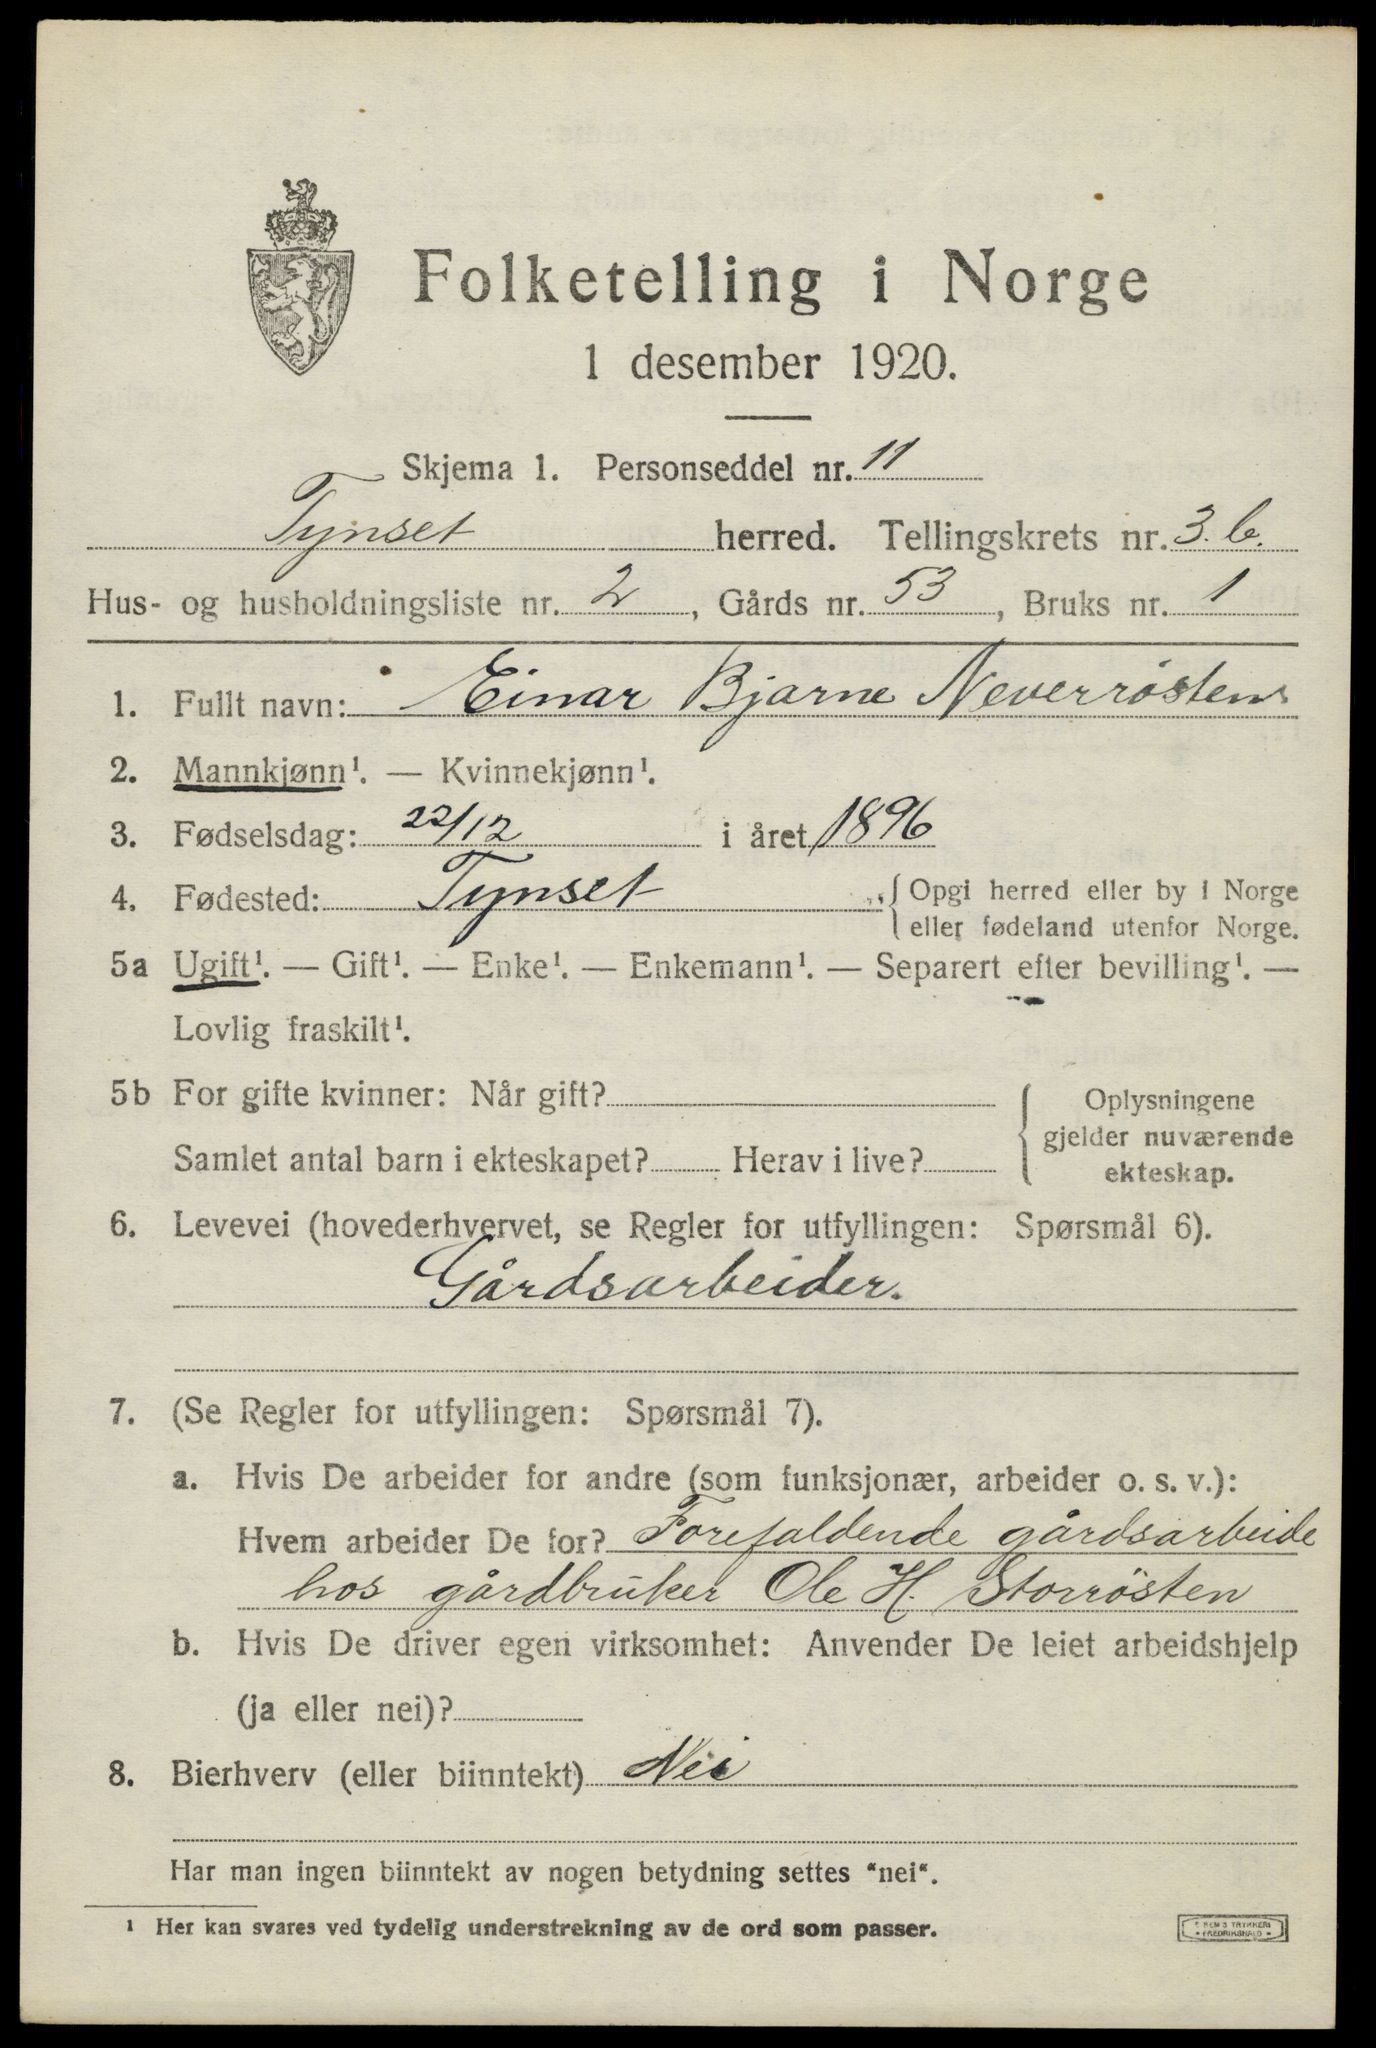 Folketelling i Norge
1 desember 1920.
Skjema 1. Personseddel nr. 11
Tynset herred. Tellingskrets nr. 3.b.
Hus- og husholdningsliste nr. 2, Gårds nr. 53, Bruks nr. 1
1. Fullt navn: Einar Bjarne Neverrösten
2. Mannkjønn¹. — Kvinnekjønn¹.
3. Fødselsdag: 22/12 i året 1896
4. Fødested: Tynset { Opgi herred eller by i Norge
eller fødeland utenfor Norge.
5a Ugift¹. — Gift¹. — Enke¹. — Enkemann¹. — Separert efter bevilling¹. —
Lovlig fraskilt¹.
5b For gifte kvinner: Når gift?
Samlet antal barn i ekteskapet? Herav i live?
Oplysningene
gjelder nuværende
ekteskap.
6. Levevei (hovederhvervet, se Regler for utfyllingen: Spørsmål 6).
Gårdsarbeider.
7. (Se Regler for utfyllingen: Spørsmål 7).
a. Hvis De arbeider for andre (som funksjonær, arbeider o. s. v.):
Hvem arbeider De for? Forefaldende gårdsarbeide
hos gårdbruker Ole H. Storrösten
b. Hvis De driver egen virksomhet: Anvender De leiet arbeidshjelp
(ja eller nei)?
8. Bierhverv (eller biinntekt) Nei
Har man ingen biinntekt av nogen betydning settes "nei".
¹ Her kan svares ved tydelig understrekning av de ord som passer.
TRYKKERI
FREDRIKSHALD